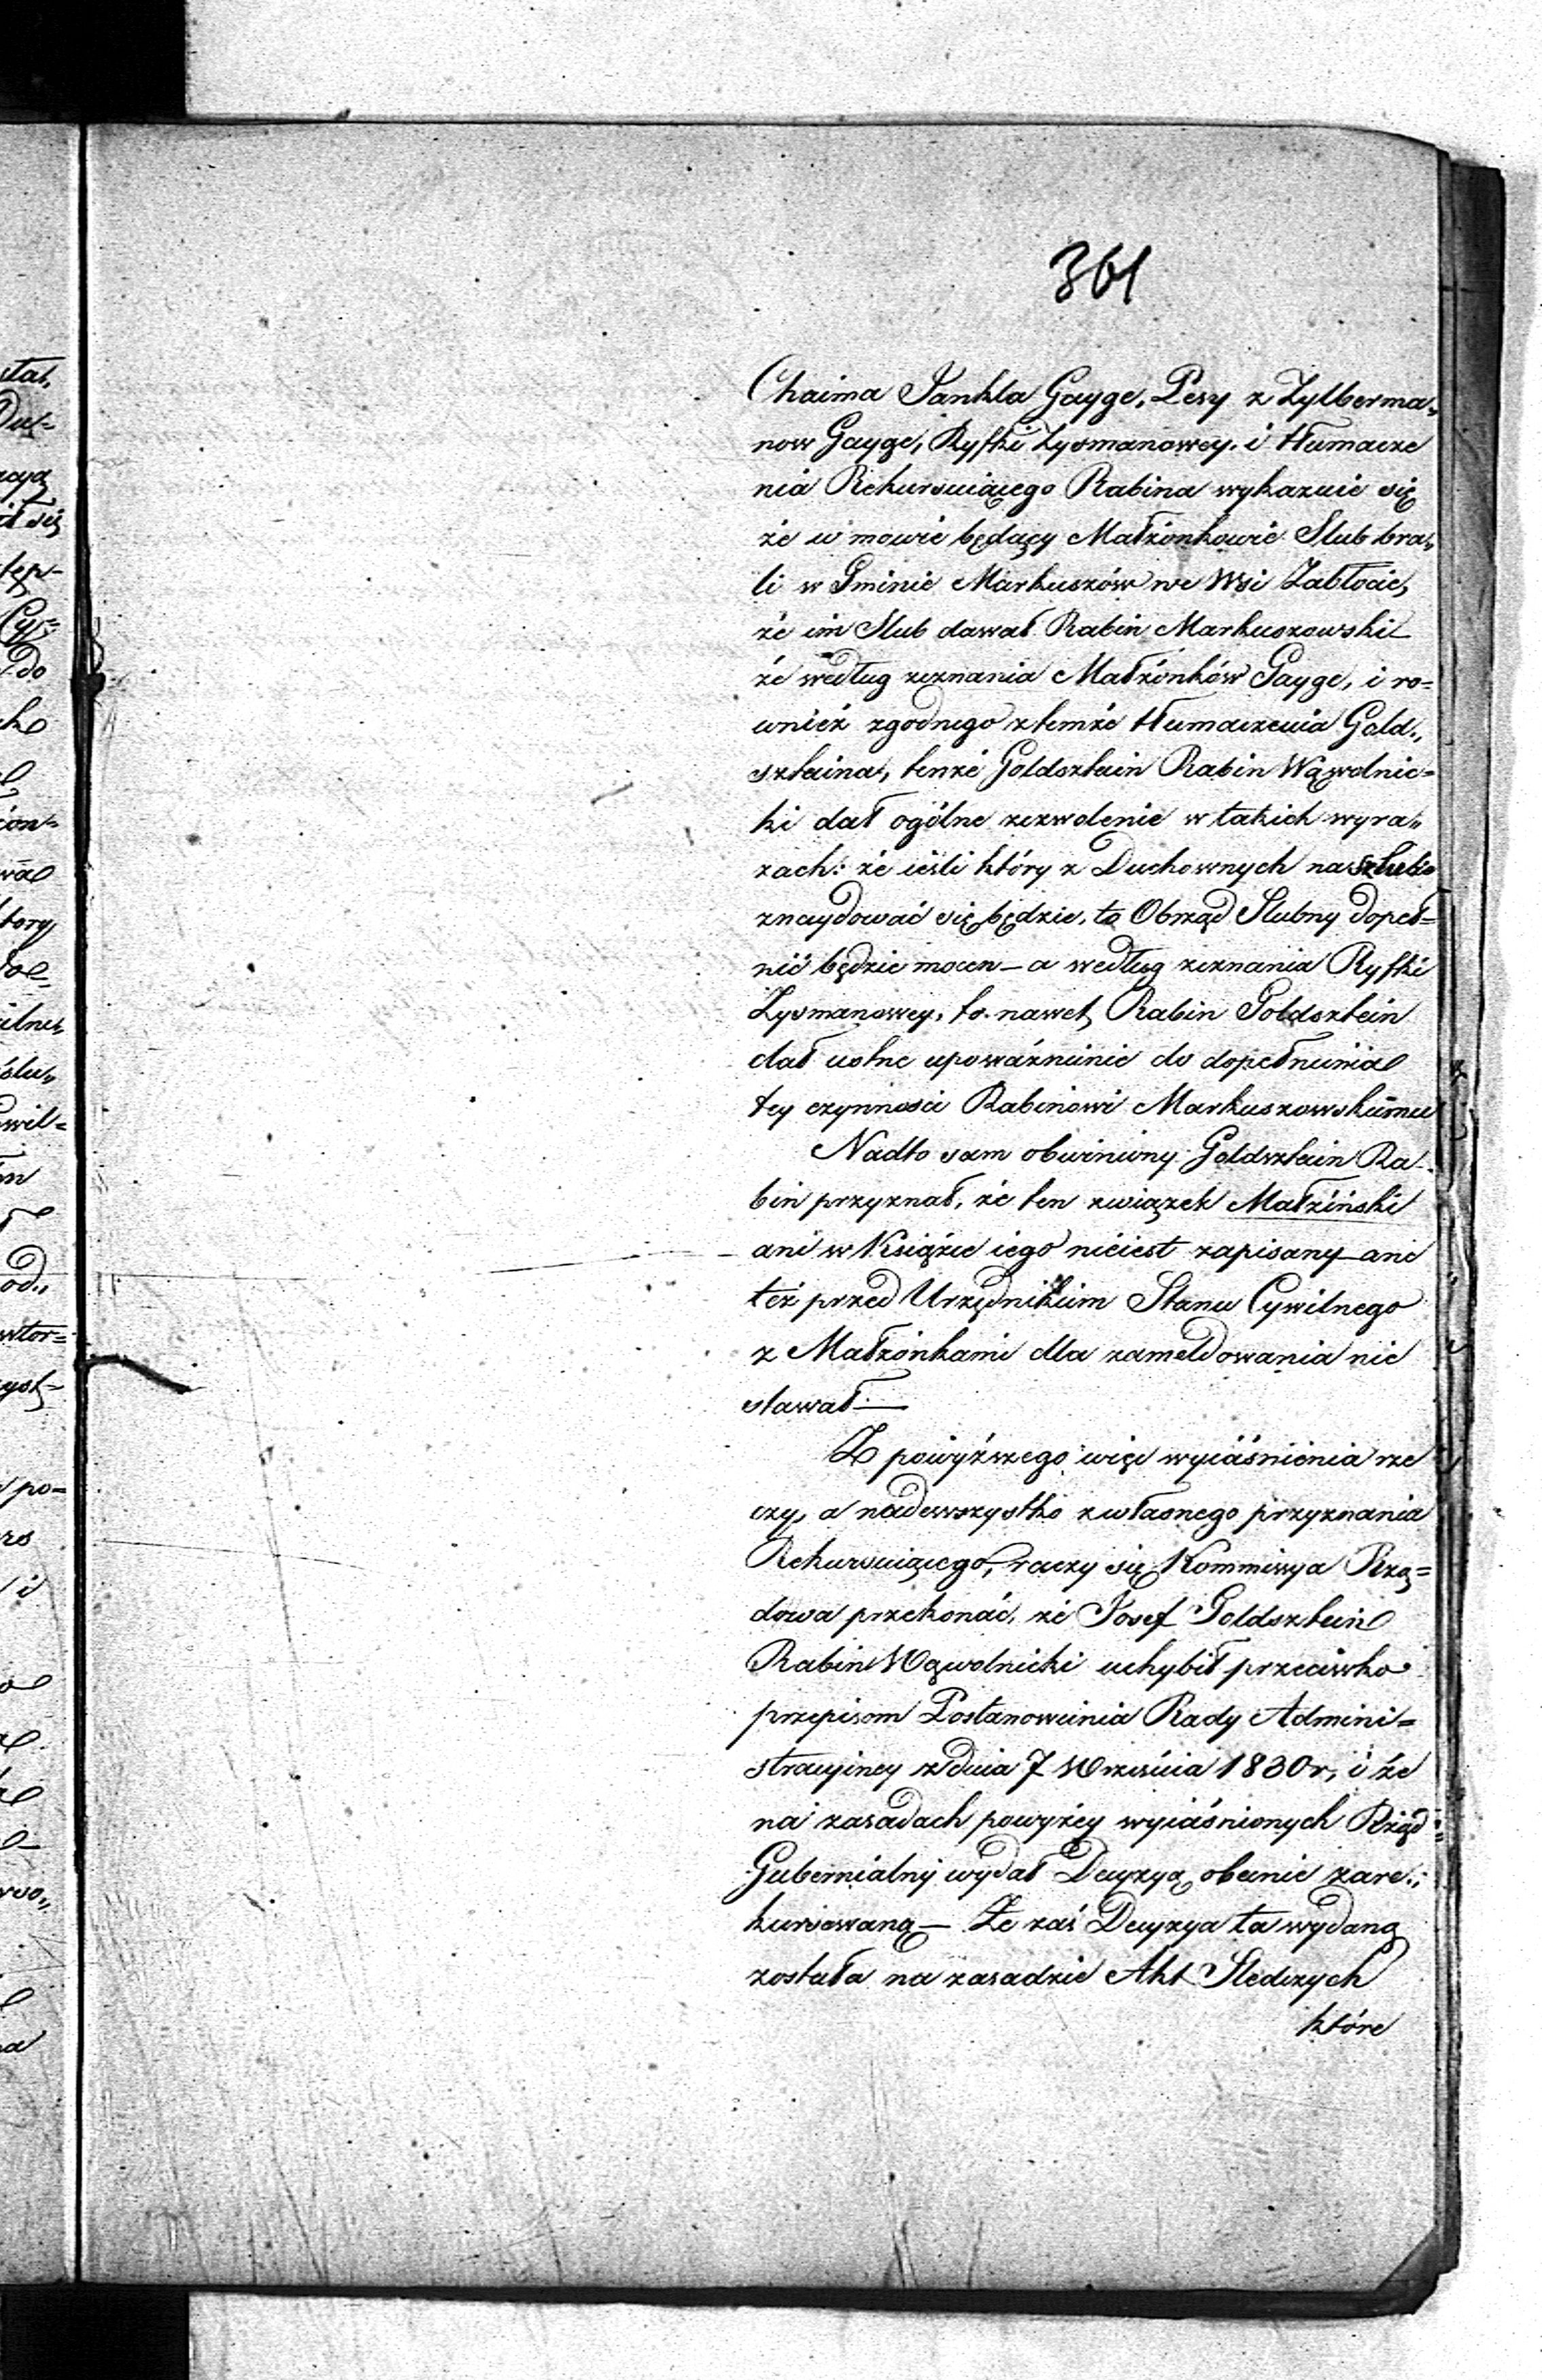 361
Chaima Jankla Gayge, Pesy z Zylberma„
now Gayge, Ryfki Zysmanowey i tłumacze
nia Rekursuiącego Rabina wykazuie się
że w mowie będący Małżonkowie Slub bra„
li w Gminie Markuszów we Wsi Zabłocie,
że im Slub dawał Rabin Markuszowski
że według zeznania Małżónków Gayge, i ro=
wnież zgodnego z temże tłumaczenia Gold„
szteina, tenże Goldsztein Rabin Wąwolnic=
ki dał ogólne zezwolenie w takich wyra„
zach: że ieśli który z Duchownych na szlubie
znaydować się będzie, to Obrząd Slubny dopeł=
nić będzie mocen — a według zeznania Ryfki
Zysmanowey, to nawet Rabin Goldsztein
dał ustne upoważnienie do dopełnienia
tey czynności Rabinowi Markuszowskiemu
Nadto sam obwiniony Goldsztein Ra-
bin przyznał, że ten związek Małżeński
ani w Książce iego nieiest zapisany ani
też przed Urzędnikiem Stanu Cywilnego
z Małżonkami dla zameldowania nie
stawał —
Z powyższego więc wyiaśnienia rze
czy, a nadewszystko z własnego przyznania
Rekursuiącego, raczy się Kommissya Rzą=
dowa przekonać, że Josef Goldsztein
Rabin Wąwolnicki uchybił przeciwko
przepisom Postanowienia Rady Admini=
stracyiney z dnia 7 Września 1830 r, i że
na zasadach powyżey wyiaśnionych Rząd
Gubernialny wydał Decyzyą obecnie zare„
kursowaną — Ze zaś Decyzya ta wydaną
została na zasadzie Akt Sledczych
które